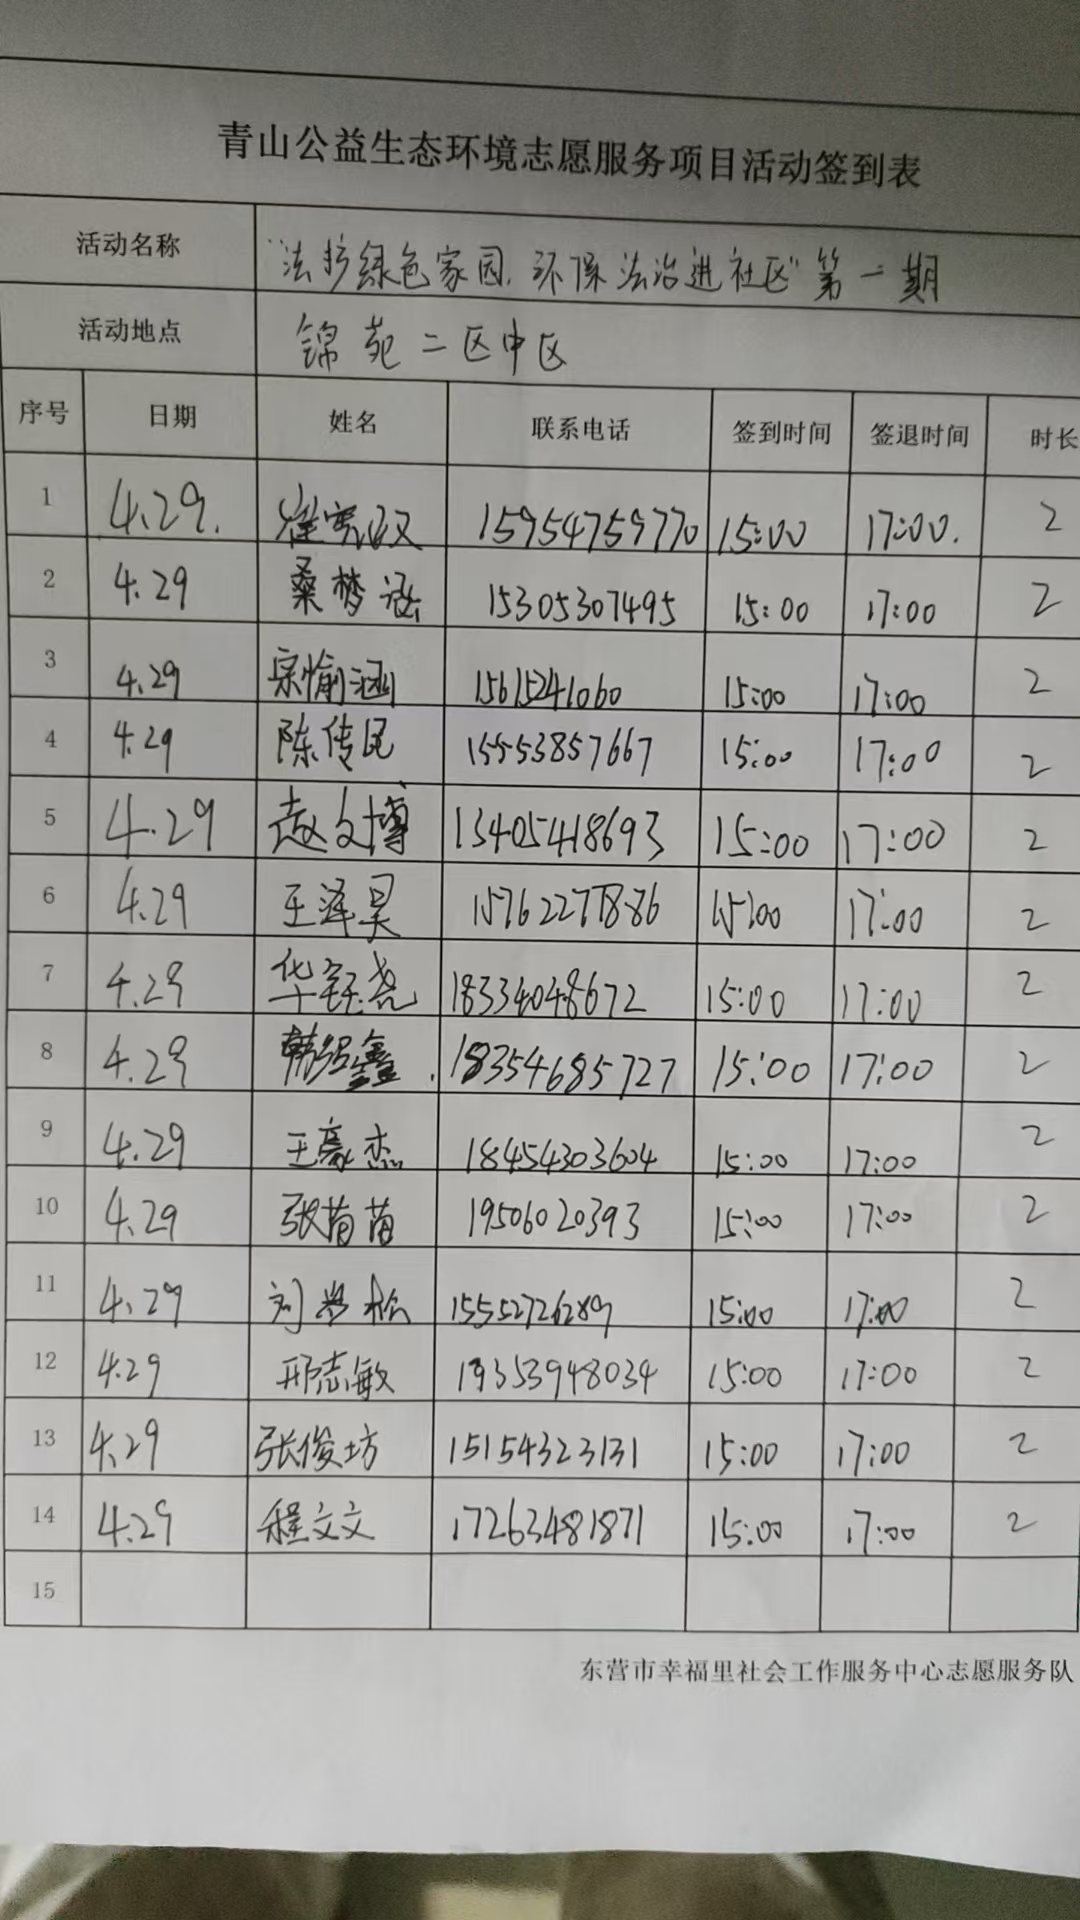 青山公益生态环境志愿服务项目活动签到表
活动名称 "法护绿色家园,环保法治进社区"第一期
活动地点 锦苑二区中区
序号 日期 姓名 联系电话 签到时间 签退时间 时长
1 4.29. 崔 汉 15954759770 15:00 17:00. 2
2 4.29 桑梦涵 15305307495 15:00 17:00 2
3 4.29 宗愉涵 15615241060 15:00 17:00 2
4 4.29 陈传民 15553857667 15:00 17:00 2
5 4.29 赵文博 13405418693 15:00 17:00 2
6 4.29 王泽昊 15:00 17:00 2
7 4.29 华钰尧 18334048672 15:00 17:00 2
8 4.29 韩 鑫 18354685727 15:00 17:00 2
9 4.29 王豪杰 18454303604 15:00 17:00 2
10 4.29 张苗苗 19506020393 15:00 17:00 2
11 4.29 刘 松 15552726289 15:00 17:00 2
12 4.29 邢志敏 19353948034 15:00 17:00 2
13 4.29 张俊坊 15154323131 15:00 17:00 2
14 4.29 程文文 17263481871 15:00 17:00 2
15
东营市幸福里社会工作服务中心志愿服务队